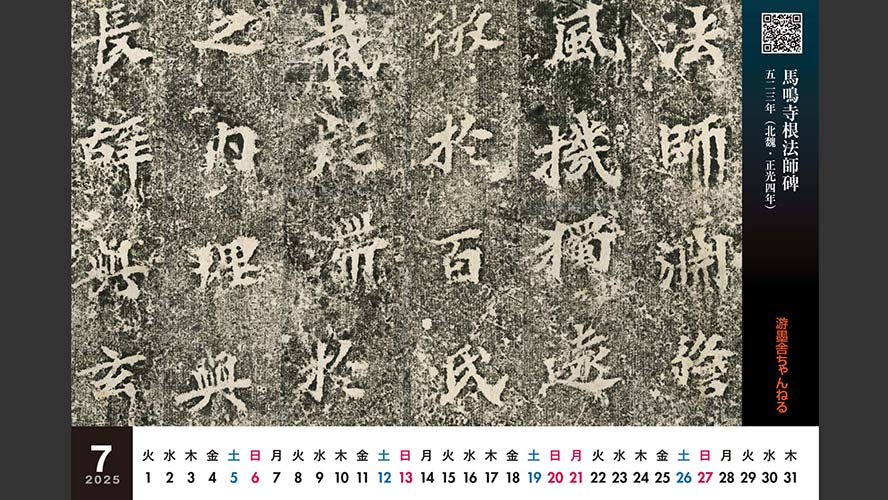 馬鳴寺根法師碑
五二三年（北魏・正光四年）
游墨舎ちゃんねる
法師
風機獨遠
於百氏
於
之内理與
長辞與玄
7
2025
火 水 木 金 土 日 月 火 水 木 金 土 日 月 火 水 木 金 土 日 月 火 水 木 金 土 日 月 火 水 木
1 2 3 4 5 6 7 8 9 10 11 12 13 14 15 16 17 18 19 20 21 22 23 24 25 26 27 28 29 30 31